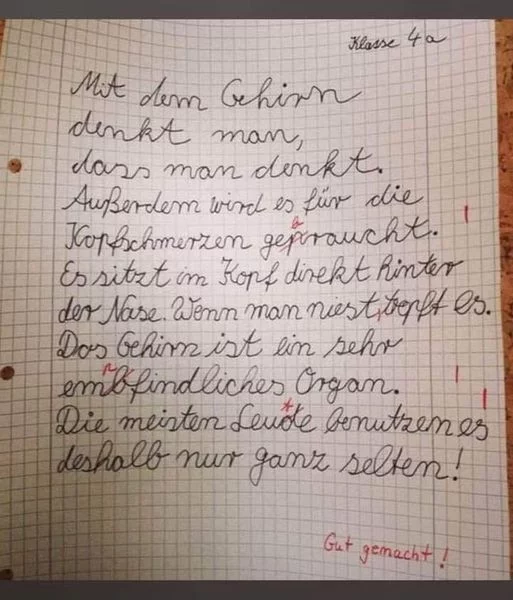 Klasse 4a
Mit dem Gehirn
denkt man,
dass man denkt.
Außerdem wird es für die
Kopfschmerzen gepraucht.
Es sitzt im Kopf direkt hinter
der Nase. Wenn man niest, trepft es.
Das Gehirn ist ein sehr
embfindliches Organ.
Die meisten Leude benutzen es
deshalb nur ganz selten!
Gut gemacht!